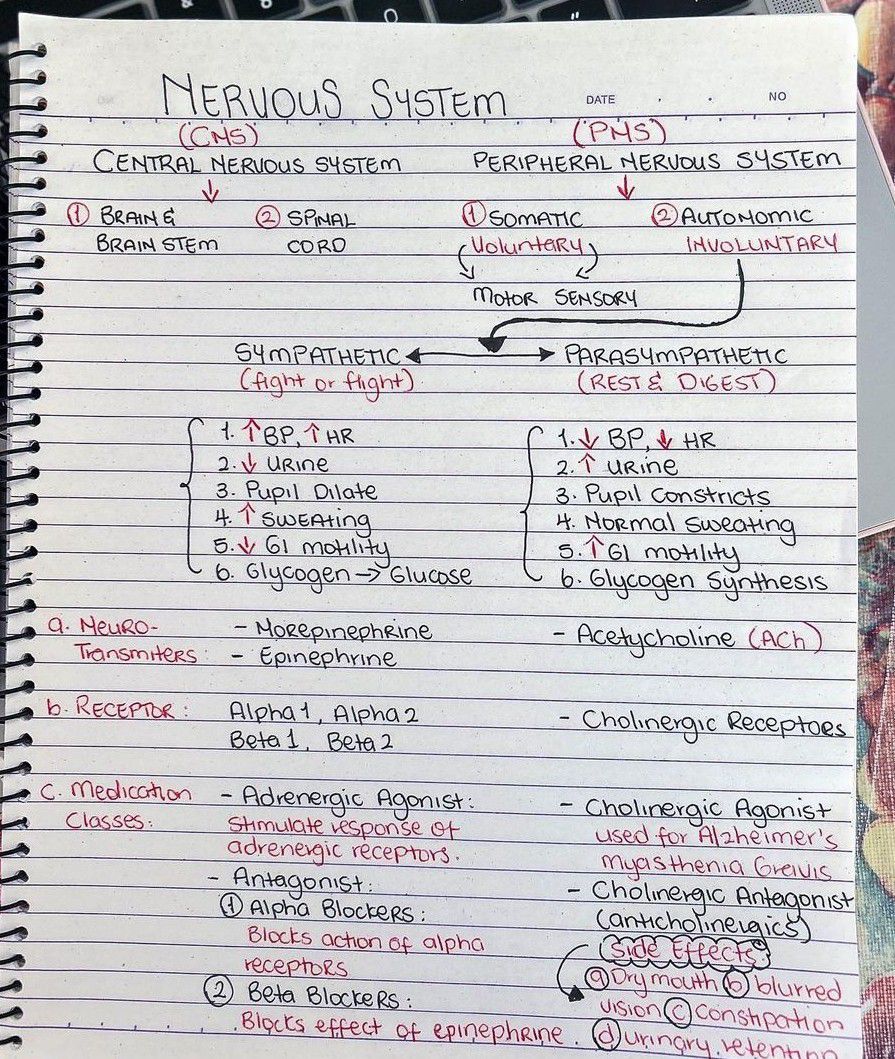 NERVOUS SYSTEM
DATE NO
(CNS) (PNS)
CENTRAL NERVOUS SYSTEM PERIPHERAL NERVOUS SYSTEM
① BRAIN & ② SPINAL ① SOMATIC ② AUTONOMIC
BRAIN STEM CORD (Voluntary) INVOLUNTARY
MOTOR SENSORY
SYMPATHETIC PARASYMPATHETIC
(fight or flight) (REST & DIGEST)
1. ↑ BP, ↑ HR 1. ↓ BP, ↓ HR
2. ↓ URine 2. ↑ URine
3. Pupil Dilate 3. Pupil Constricts
4. ↑ SWEATing 4. Normal Sweating
5. ↓ GI motility 5. ↑ GI motility
6. Glycogen → Glucose 6. Glycogen Synthesis
a. NEURO- - Norepinephrine - Acetycholine (ACh)
Transmiters: - Epinephrine
b. RECEPTOR: Alpha 1, Alpha 2 - Cholinergic Receptors
Beta 1, Beta 2
c. Medication - Adrenergic Agonist: - Cholinergic Agonist
Classes: Stimulate response of used for Alzheimer's
adrenergic receptors. myasthenia Greivis
- Antagonist: - Cholinergic Antagonist
① Alpha Blockers: (anticholinergics)
Blocks action of alpha Side Effects:
receptors ⓐ Dry mouth ⓑ blurred
② Beta Blockers: vision ⓒ constipation
Blocks effect of epinephrine. ⓓ urinary retention